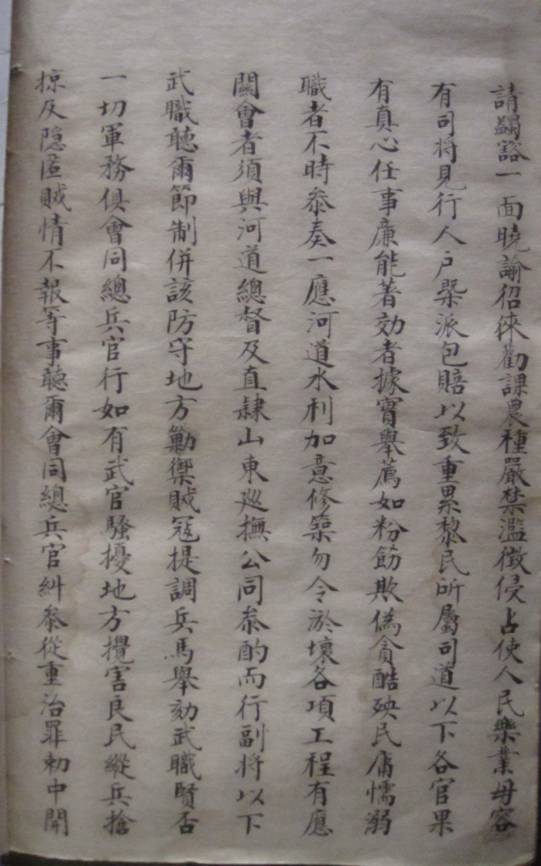 請蠲豁一面曉諭招徠勸課農種嚴禁濫徵侵占使人民樂業毋容
有司將見行人戶槩派包賠以致重累黎民所屬司道以下各官果
有真心任事廉能著効者據實舉薦如粉飭欺偽貪酷殃民庸懦溺
職者不時叅奏一應河道水利加意修築勿令淤壞各項工程有應
關會者須與河道總督及直隸山東廵撫公同叅酌而行副將以下
武職聽爾節制併該防守地方勦禦賊冦提調兵馬舉劾武職賢否
一切軍務俱會同總兵官行如有武官騷擾地方攪害良民縱兵搶
掠及隱匿賊情不報等事聽爾會同總兵官糾叅從重治罪勅中開